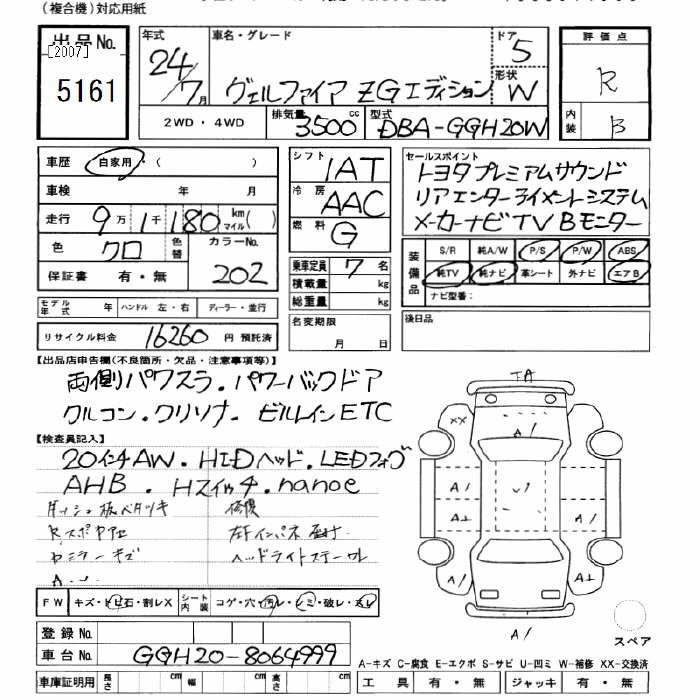 (複合機)対応用紙
出品No.
[2007]
5161
年式
24/7月
車名・グレード
ヴェルファイア ZGエディション
ドア
5
形状
W
評価点
R
内装
B
2WD・4WD
排気量
3500cc
型式
DBA-GGH20W
車歴
自家用・( )
車検 年 月
走行 9万1千180 km マイル( )
色 クロ
色替
カラーNo.
202
保証書 有・無
シフト
IAT
冷房
AAC
燃料
G
乗車定員 7名
積載量 kg
総重量 kg
セールスポイント
トヨタプレミアムサウンド
リアエンターテイメントシステム
メーカーナビTV Bモニター
装備品
S/R 純A/W P/S P/W ABS
純TV 純ナビ 革シート 外ナビ エアB
ナビ型番:
モデル年式 年 ハンドル 左・右 ディーラー・並行
リサイクル料金 16260円 預託済
名変期限
月 日
後日品
【出品店申告欄(不良箇所・欠品・注意事項等)】
両側パワスラ・パワーバックドア
クルコン・クリソナ・ビルトインETC
【検査員記入】
20インチAW・HIDヘッド・LEDフォグ
AHB・Hスイッチ・nanoe
ダッシュ板ベタツキ
ヘッドライトステー
キズ
FW キズ・トビ石・ワレX
シート内装 コゲ・穴・汚レ・シミ・破レ・スレ
登録No.
車台No. GGH20-8064999
車庫証明用 長さ cm 幅 cm 高さ cm
TA
XX
A1
A1
A1
A1
A1
A1
スペア
A-キズ C-腐食 E-エクボ S-サビ U-凹ミ W-補修 XX-交換済
工具 有・無 ジャッキ 有・無